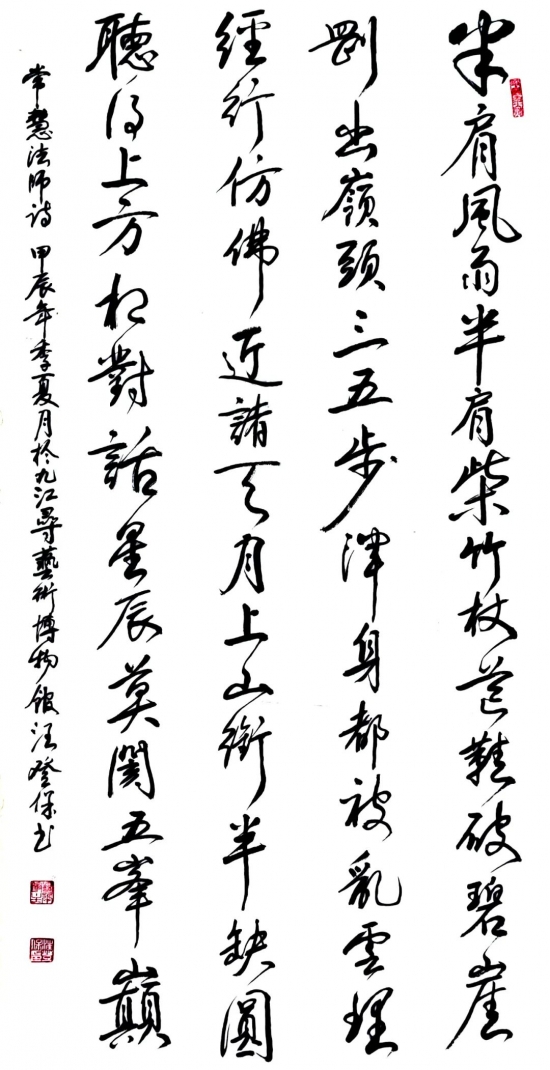 半肩風雨半肩柴竹杖芒鞋破碧崖
剛出嶺頭三五步渾身都被亂雲埋
經行仿佛近諸天月上山銜半缺圓
聽得上方相對話星辰莫五峯巔
常慧法師詩 甲辰年季夏月於九江尋藝術博物館汪登保書